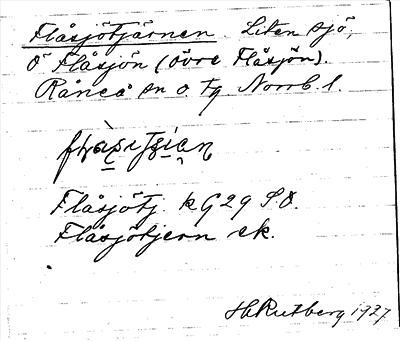 Flåsjötjärnen. Liten sjö,
Ö Flåsjön (övre Flåsjön).
Råneå sn o. tg Norrb. l.
Flåsjötj. k G29 S.O.
Flåsjötjern ek.
H. Rutberg 1927